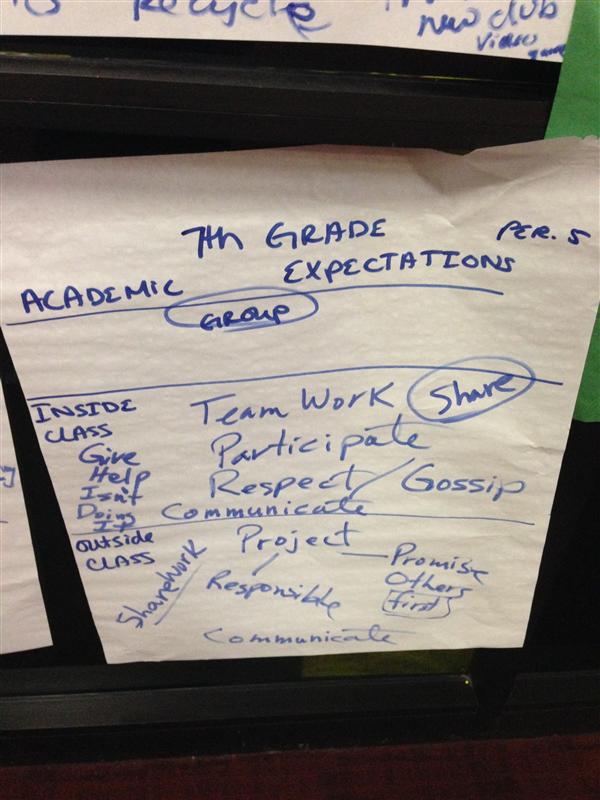 Recycle
new club
video
game
7th GRADE
PER. 5
ACADEMIC EXPECTATIONS
GROUP
INSIDE
CLASS
Team Work Share
Give
Help
Isn't
Doing
It
Participate
Respect / Gossip
Communicate
Outside
CLASS
Project
Share Work
Responsible
Promise
Others
first
Communicate